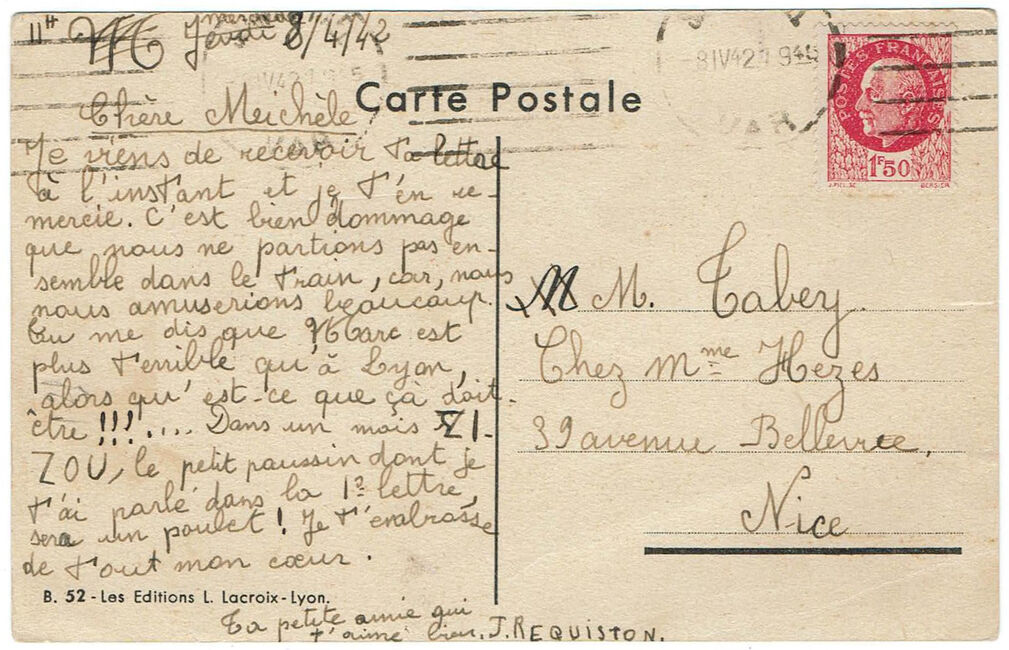 11H mercredi
Jeudi 8/4/42
Chère Meichèle
Je viens de recevoir ta lettre
à l'instant et je t'en re-
mercie. C'est bien dommage
que nous ne partions pas en-
semble dans le train, car, nous
nous amuserions beaucoup.
Tu me dis que Marc est
plus terrible qu'à Lyon,
alors qu'est-ce que çà doit-
être !!!.... Dans un mois ZI-
ZOU, le petit paussin dont je
t'ai parlé dans la 1re lettre,
sera un poulet ! Je t'embrasse
de tout mon cœur.
B. 52 - Les Editions L. Lacroix - Lyon.
Ta petite amie qui
t'aime bien. J. REQUISTON.
Carte Postale
8IV42
VAR
POSTES FRANÇAISES
1F50
J. PIEL. SC BERSIER
M. Tabey
Chez Mme Hezes
39 avenue Bellevue,
Nice